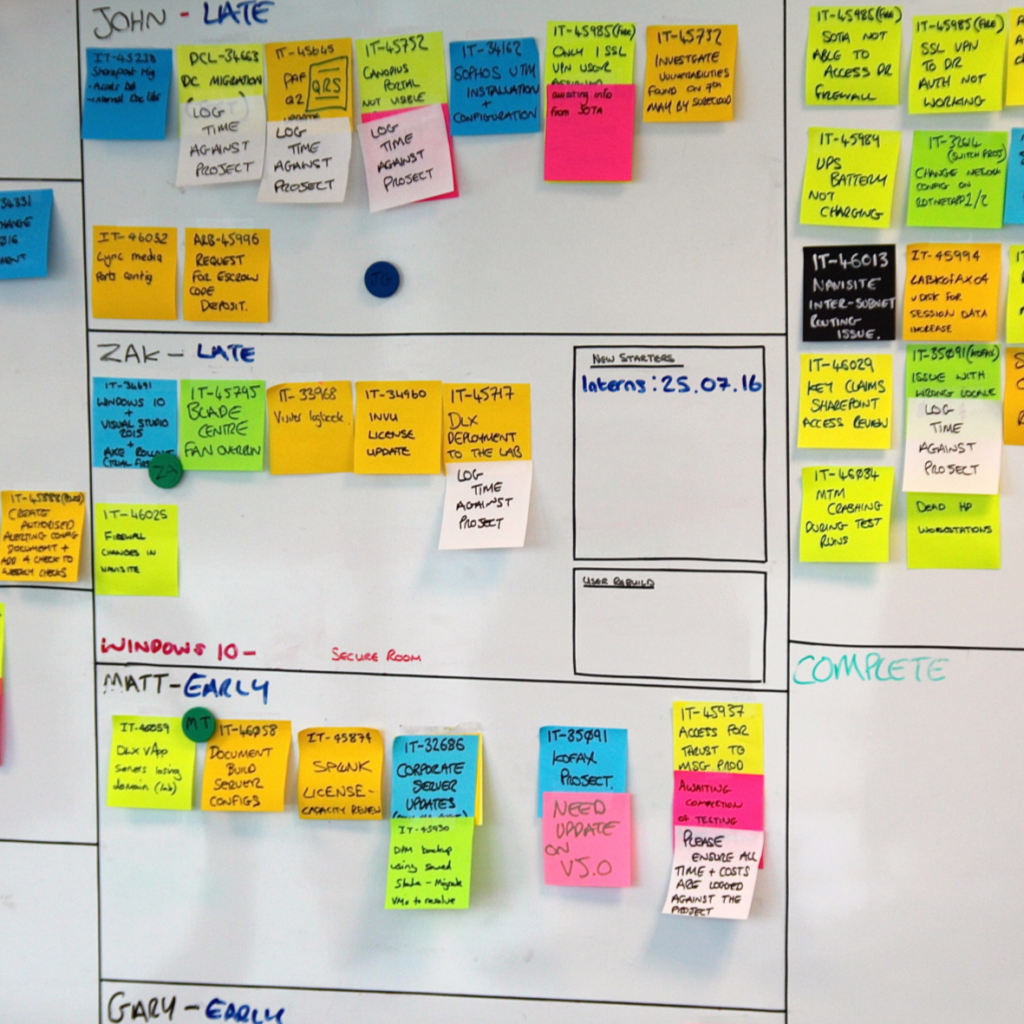 JOHN - LATE
IT-45238
DCL-34663
DC MIGRATION
LOG
TIME
AGAINST
PROJECT
IT-45645
DAF
Q2
QRS
UPDATE
LOG
TIME
AGAINST
PROJECT
IT-45752
CANOPIUS
PORTAL
NOT USABLE
LOG
TIME
AGAINST
PROJECT
IT-34162
SOPHOS UTM
INSTALLATION
+
CONFIGURATION
IT-45985(FIRE)
ONLY 1 SSL
VPN USER
awaiting info
from SOTA
IT-45732
INVESTIGATE
VULNERABILITIES
FOUND ON 9TH
MAY BY
IT-46032
Lync media
Ports config
ALB-45996
REQUEST
FOR ESCROW
CODE
DEPOSIT.
ZAK - LATE
IT-34691
WINDOWS 10
+
VISUAL STUDIO
2015
+
IT-45745
BLADE
CENTRE
FAN OVERRUN
IT-33968
logbook
IT-34960
INVU
LICENSE
UPDATE
IT-45717
DLX
DEPLOYMENT
TO THE LAB
LOG
TIME
AGAINST
PROJECT
IT-46025
FIREWALL
CHANGES IN
NAVISITE
NEW STARTERS
Interns: 25.07.16
USER REBUILD
WINDOWS 10 -
SECURE ROOM
MATT - EARLY
MT
IT-46059
DLX VApp
Servers losing
domain (lab)
IT-46058
DOCUMENT
BUILD
SERVER
CONFIGS
IT-45874
SPLUNK
LICENSE -
CAPACITY REVIEW
IT-32686
CORPORATE
SERVER
UPDATES
IT-45930
DPM backup
using saved
State - Migrate
VMs to resolve
IT-35091
KOFAX
PROJECT.
NEED
UPDATE
ON
V5.0
IT-45937
ACCESS FOR
THRUST TO
MSG PROD
AWAITING
COMPLETION
OF TESTING
PLEASE
ENSURE ALL
TIME + COSTS
ARE LOGGED
AGAINST THE
PROJECT
GARY - EARLY
CREATE
AUTHORISED
ALERTING CONFIG
DOCUMENT +
ADD A CHECK TO
WEEKLY CHECKS
IT-45985(FIRE)
SOTA NOT
ABLE TO
ACCESS DR
FIREWALL
IT-45985(FIRE)
SSL VPN
TO DR
AUTH NOT
WORKING
IT-45984
UPS
BATTERY
NOT
CHARGING
IT-32614
(SWITCH PROJ)
CHANGE NETWORK
CONFIG ON
IT-46013
NAVISITE
INTER-SUBNET
ROUTING
ISSUE.
IT-45994
LABKOFAX04
VDISK FOR
SESSION DATA
INCREASE
IT-46029
KEY CLAIMS
SHAREPOINT
ACCESS REVIEW
IT-35091(KOFAX)
ISSUE WITH
WRONG LOCALE
LOG
TIME
AGAINST
PROJECT
IT-46034
MTM
CRASHING
DURING TEST
RUNS
DEAD HP
WORKSTATIONS
COMPLETE